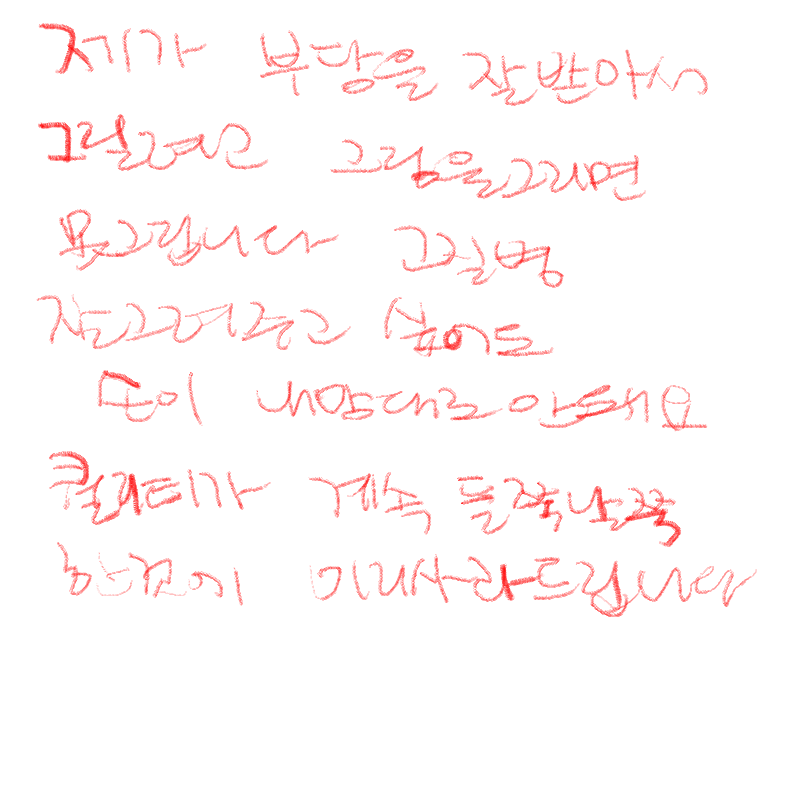 제가 부담을 잘 받아서
그릴려고 그림을 그리면
못그립니다 그 질병
잘 그려주고 싶어도
손이 내맘대로 안돼요
퀄리티가 계속 들쭉날쭉
한 것에 미리 사과드립니다